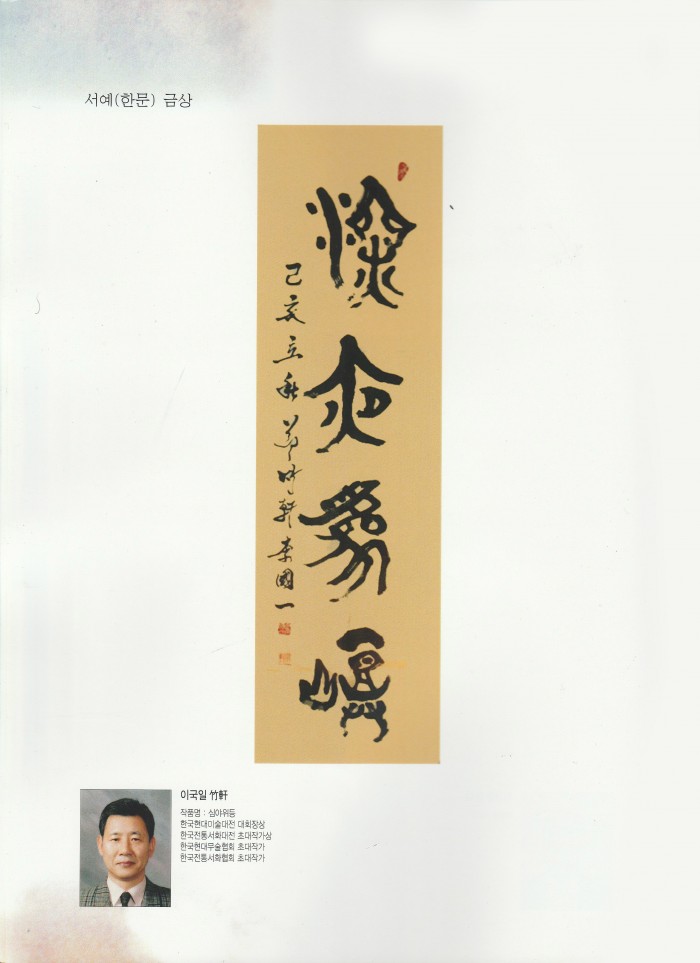 서예(한문) 금상
深夜爲燈
己亥立秋節竹軒李國一
이국일 竹軒
작품명 : 심야위등
한국현대미술대전 대회장상
한국전통서화대전 초대작가상
한국현대무술협회 초대작가
한국전통서화협회 초대작가